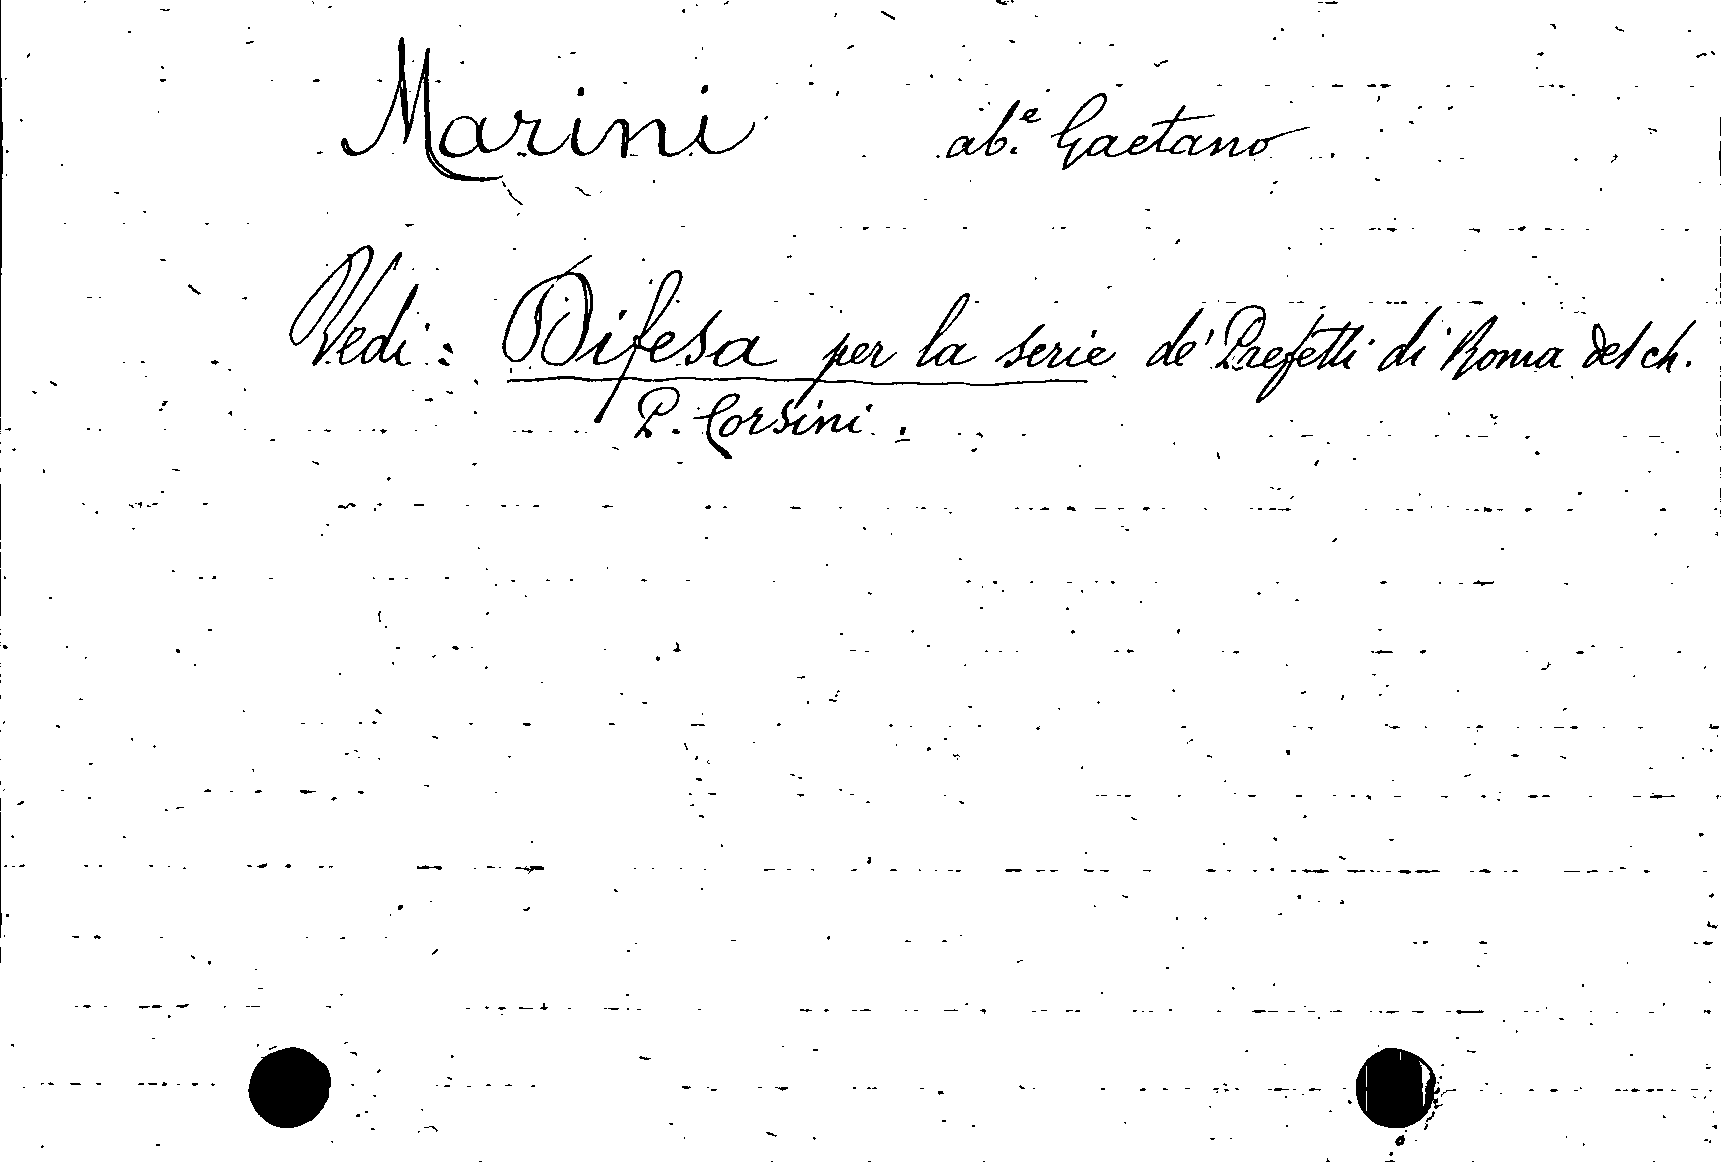 Marini ab.e Gaetano
Vedi: Difesa per la serie de' Prefetti di Roma del ch.
P. Corsini.